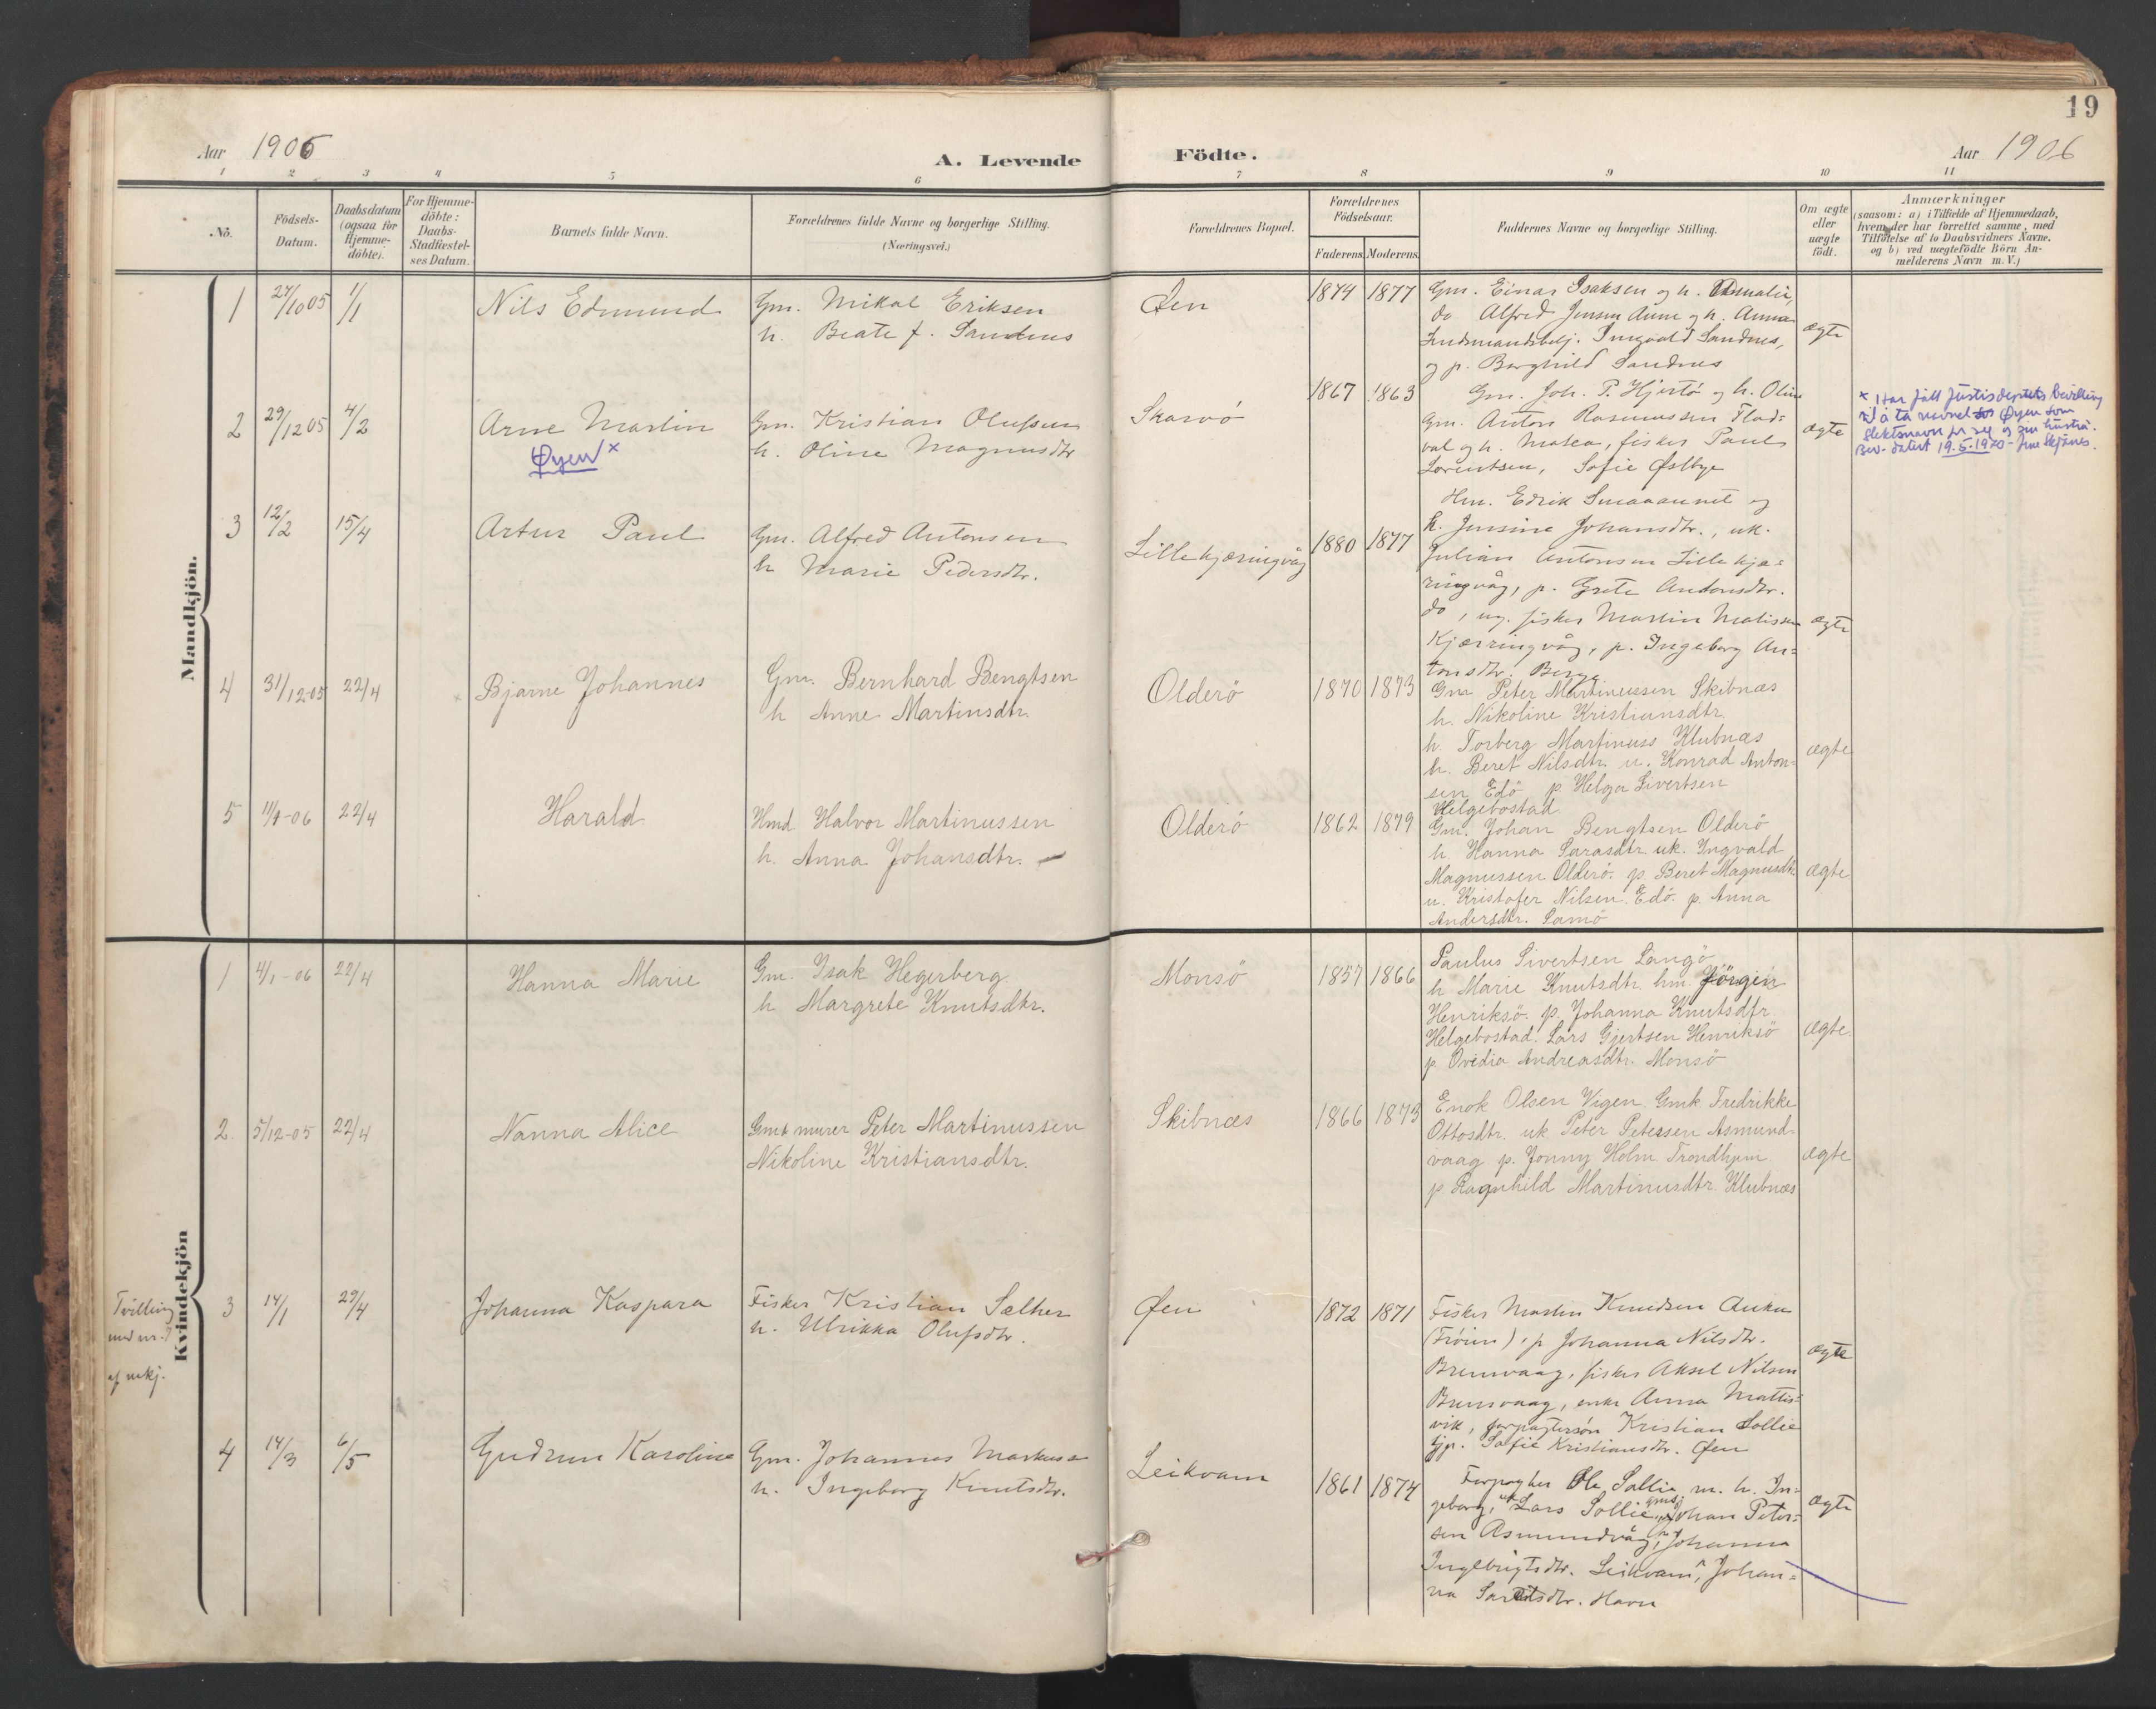 19
Aar 1906
A. Levende
Födte.
Aar 1906
1 2 3 4 5 6 7 8 9 10 11
No.
Födsels-
Datum.
Daabsdatum
(ogsaa for
Hjemme-
döbte).
For Hjemme-
döbte:
Daabs-
Stadfæstel-
ses Datum.
Barnets fulde Navn.
Forældrenes fulde Navne og borgerlige Stilling.
(Næringsvei.)
Forældrenes Bopæl.
Forældrenes
Födselsaar.
Faderens.
Moderens.
Faddernes Navne og borgerlige Stilling.
Om ægte
eller
uægte
födt.
Anmærkninger
(saasom: a) i Tilfælde af Hjemmedaab,
hvem der har forrettet samme, med
Tilföielse af to Daabsvidners Navne.
og b) ved uægtefödte Börn An-
melderens Navn m. V.)
Mandkjön.
1 27/10 05 1/1 Nils Edmund
Gm. Mikal Eriksen
h. Beate f. Sandnes
Øen 1874 1877
Gm. Einar Isaksen og h. Amalie,
do Alfred Jensen Aune og h. Anna
Lendsmandsbetj. Ingvald Sandnes,
og p. Borghild Sandnes
ægte
2 29/12 05 4/2 Arne Martin
Øyen x
Gm. Kristian Olufsen
h. Oline Magnusdtr
Skarvö 1867 1863
Gm. Joh. P. Hjertö og h. Oline
Gm. Anton Rasmussen Flad-
val og h. Matea, fisker Paul
Lorentsen, Sofie Østbye
ægte
x Har fått Justisdeptets bevilling
til å ta navnet Øyen som
slektsnavn for seg og sin hustru.
Bev. datert 19.5.1970 -
3 12/2 15/4 Artur Paul
Gm. Alfred Antonsen
h Marie Pedersdtr.
Lillekjæringvåg 1880 1877
Hm. Edrik Smaaaunet og
h. Jensine Johansdtr., uk.
Julian Antonsen Lillekjæ-
ringvåg, p. Grete Antonsdtr.
do, ug. fisker Martin Matissen
Kjærringvåg, p. Ingeborg An-
tonsdtr. Berge
ægte
4 31/12-05 22/4 Bjarne Johannes
Gm. Bernhard Bengtsen
h Anne Martinsdtr.
Olderö 1870 1873
Gm Peter Martinussen Skibnæs
h. Nikoline Kristiansdtr.
h. Torberg Martinuss Klubnæs
h. Beret Nilsdtr. u. Konrad Anton-
sen Edö p. Helga Sivertsen
Helgebostad
ægte
5 11/1-06 22/4 Harald
Hmd Halvor Martinussen
h. Anna Johansdtr.
Olderö 1862 1879
Gm. Johan Bengtsen Olderö
h Hanna Larasdtr. uk. Ingvald
Magnussen Olderö. p. Beret Magnusdtr.
u. Kristofer Nilsen Edö. p. Anna
Andersdtr. Samö
ægte
Kvindekjön
1 4/1-06 22/4 Hanna Marie
Gm. Isak Hegerberg
h Margrete Knutsdtr.
Monsö 1857 1866
Paulus Sivertsen Langö
h Marie Knutsdtr. hm. Jörgen
Henriksö. p. Johanna Knutsdtr.
Helgebostad. Lars Gjertsen Henriksö
p. Ovedia Andreasdtr. Monsö
ægte.
2. 5/12-05 22/4 Nanna Alice
Gmk murer Peter Martinussen
Nikoline Kristiansdtr.
Skibnæs 1866 1873
Enok Olsen Vigen. Gmk Fredrikke
Ottosdtr. uk Peter Petersen Asmund-
vaag p. Jonny Holm Trondhjem
p. Ragnhild Martinusdtr. Klubnæs
ægte
Tvilling
med nr.
af mkj.
3 14/1 29/4 Johanna Kaspara
Fisker Kristian Sæther
h. Ulrikka Olufsdtr.
Øen 1872 1871
Fisker Martin Knudsen Auka
(Fröien), p Johanna Nilsdtr.
Bremvaag, fisker Aksel Nilsen
Bremvaag, enke Anna Mattis-
vik, forpagtersön Kristian Sollie
Gjp. Sofie Kristiansdtr. Øen
ægte
4 14/3 6/5 Gudrun Karoline
Gm. Johannes Markussen
h. Ingeborg Knutsdtr.
Leikvam 1861 1874
Forpagter Ole Sollie m. h. In-
geborg, uk Lars Sollie, gmsg Johan Peter-
sen Asmundvåg, p. Johanna
Ingebrigtsdtr. Leikvam, Johan-
na Havn
ægte